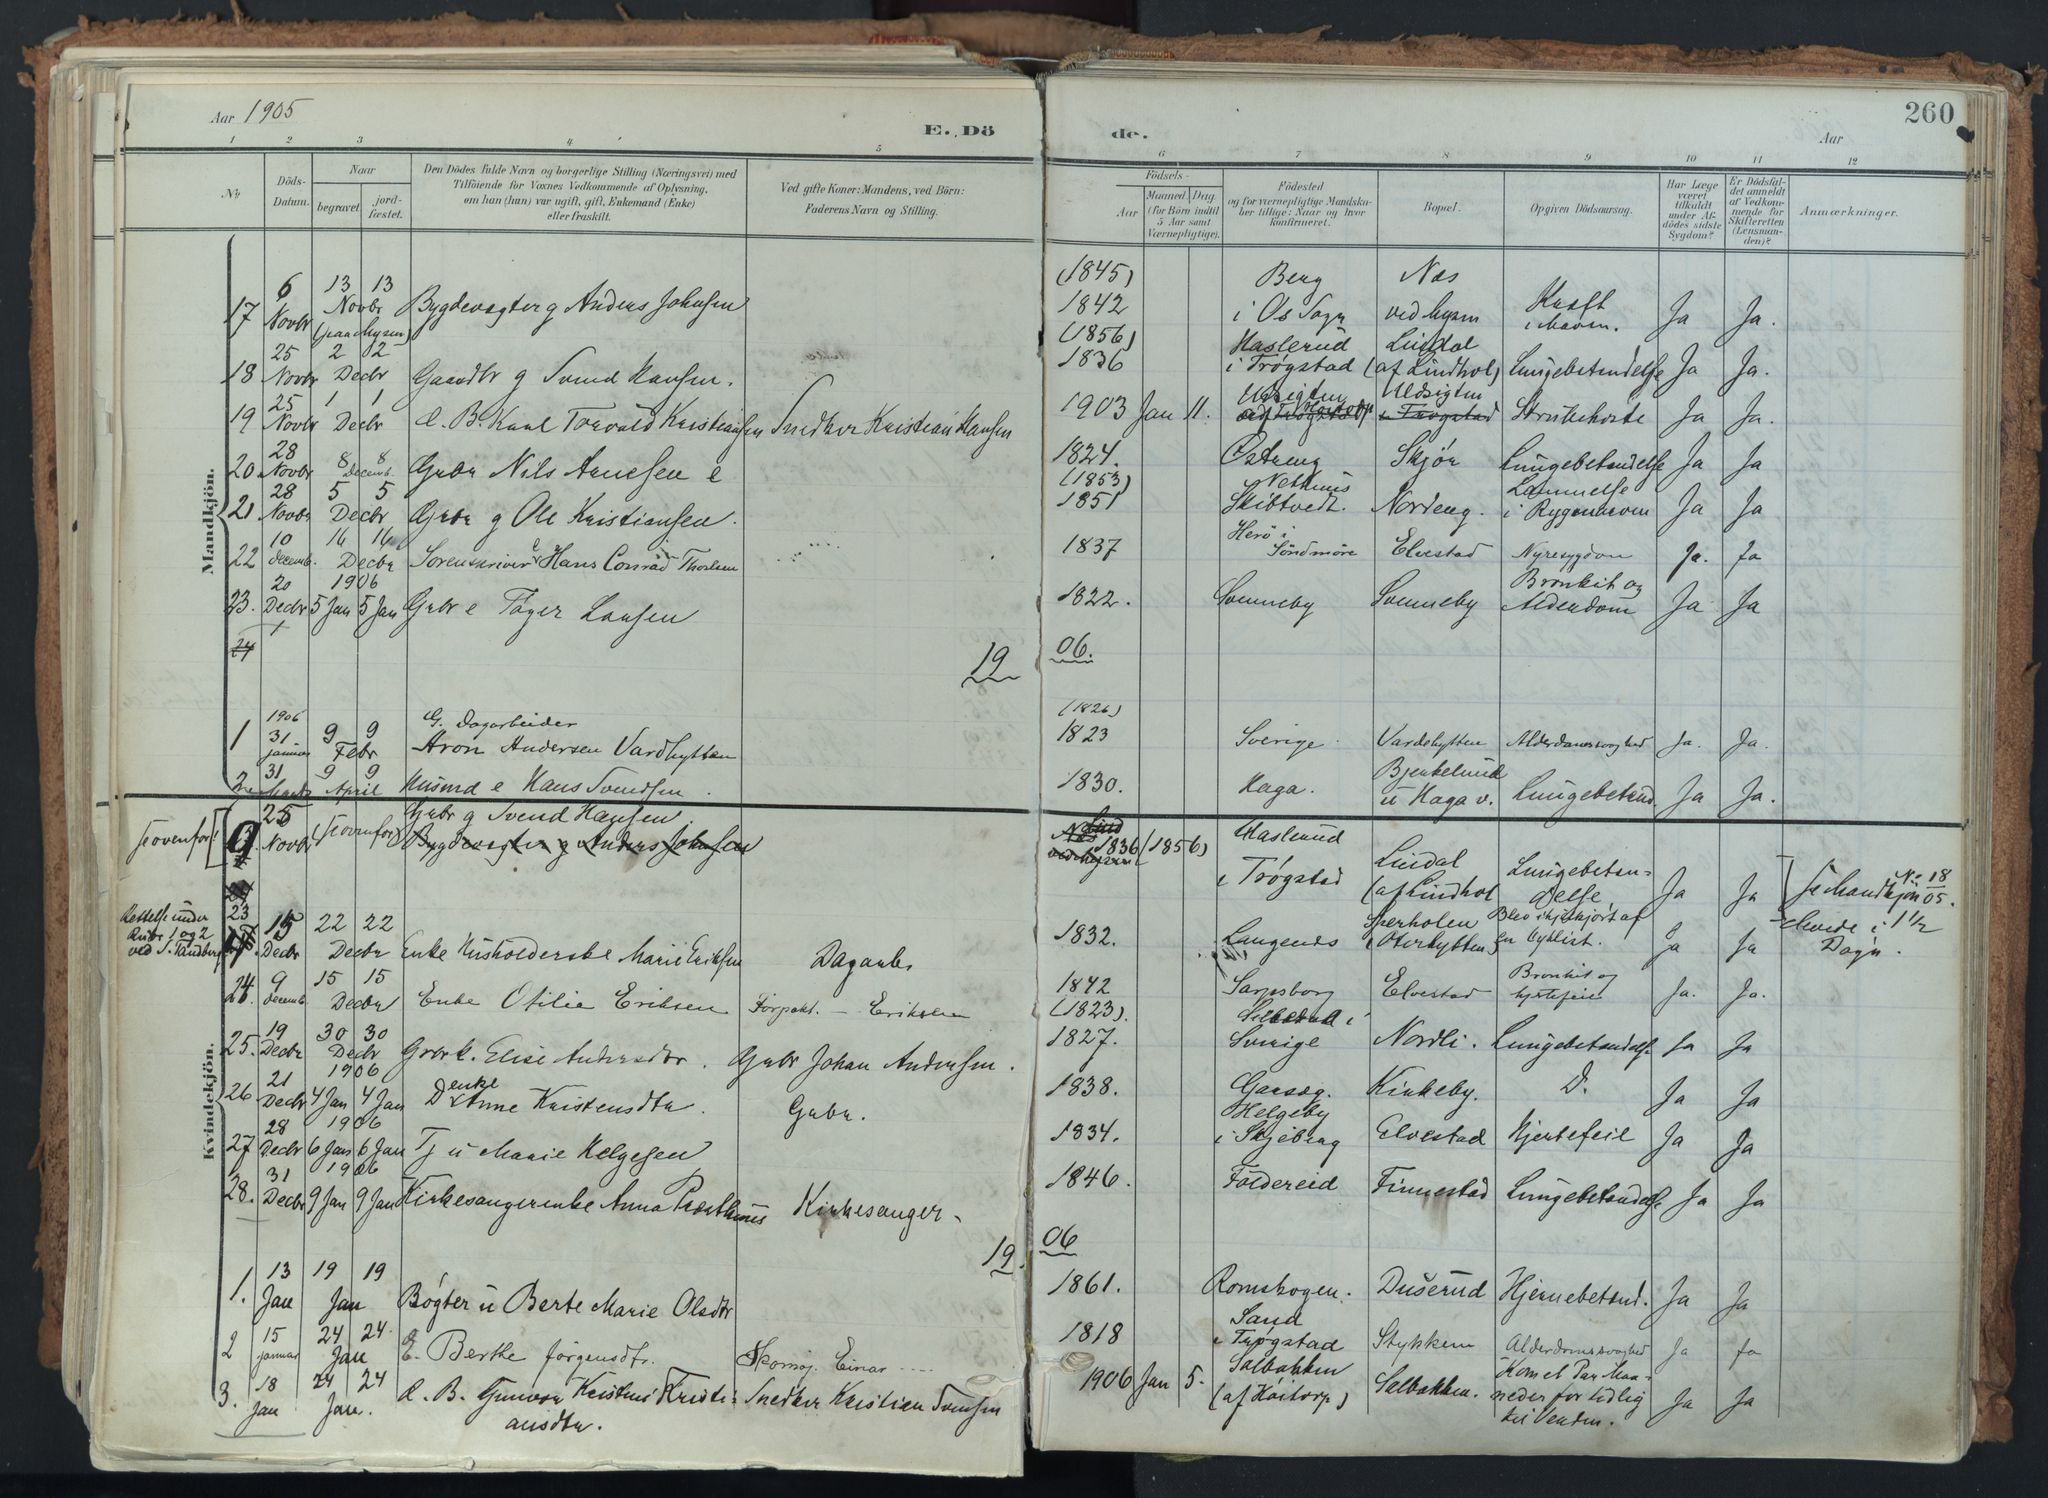 Aar 1905
E. Dö de.
Aar
260
1 2 3 4 5 6 7 8 9 10 11 12
Nr
Döds-Datum.
Naar
begravet.
jord-fæstet.
Den Dödes fulde Navn og borgerlige Stilling (Næringsvei) med
Tilföiende for Voxnes Vedkommende af Oplysning,
om han (hun) var ugift, gift, Enkemand (Enke)
eller fraskilt.
Ved gifte Koner: Mandens, ved Börn:
Faderens Navn og Stilling.
Födsels-
Aar
Maaned Dag
(for Börn indtil
5 Aar samt
Værnepligtige).
Födested
og for værnepligtige Mandsku-
ber tillige: Naar og hvor
konfirmeret.
Bopæl.
Opgiven Dödsaarsag.
Har Læge
været
tilkaldt
under Af-
dödes sidste
Sygdom?
Er Dödsfal-
det anmeldt
af Vedkom-
mende for
Skifteretten
(Lensman-
den)?
Anmærkninger.
Mandkjön.
6 13 13 (1845) Berg Næs
17 Novbr Novbr Bygdevægter g Anders Johnsen 1842 i Os Sogn ved Mysen Kræft i Maven. Ja Ja.
25 2 2 (1856) Haslerud Lindal
18 Novbr Decbr Gaardbr g Svend Hansen. 1836 i Trøgstad (af Lindhol) Lungebetændelse Ja Ja.
25 1 1 Udsigten Udsigten
19 Novbr Decbr e. B. Karl Torvald Kristiansen Snedker Kristian Hansen 1903 Jan 11. i Trøgstad Strubehoste Ja Ja.
28
20 Novbr 8 Decemb. 8 Gaardbr Nils Arnesen e 1824. Østreng Skjør Lungebetændelse Ja Ja
28 5 5 (1853) Lammelse
21 Novbr Decbr Gbr g Ole Kristiansen. 1851 Skibtvedt. Nordeng. i Rygmarven Ja Ja
10 16 16 Herö i
22 Decemb. Decbr Sorenskriver e Hans Conrad Thoresen 1837 Söndmöre Elvestad Nyresygdom Ja. Ja
20 1906 Bronkit og
23. Decbr 5 Jan 5 Jan Gbr e Tøger Larsen 1822. Svenneby Svenneby Alderdom Ja Ja
24
19 06.
1906 G. Dagarbeider (1826)
1 31 Januar 9 9 Febr Aron Andersen Vardhytten 1823 Sverige. Vardehytten Alderdomssvaghed Ja. Ja.
31 9 9 Bjerkelund
2 Marts April Husmd e Hans Svendsen. 1830. Haga. u Haga v. Lungebetænd. Ja Ja.
Kvindekjön.
25 Gbr g Svend Hansen
[se ovenfor! Novbr (se ovenfor) Bygdevægter g Anders Johnsen 1836 (1856) Haslerud i Trøgstad Lindal (af Lindhol Lungebetæn-delse Ja Ja se Mandkjön No 18 05.
Rettelse under Rubr. 1 og 2 ved S. Tandberg
23 15 22 22
Decbr Decbr Enke Husholderske Marie Eriksen Dagarb. 1832. Langenes Sperholen (Oterhytten) Blev ihjelkjørt af en Cyklist. Ja Ja levede i 1½ Døgn.
24. 9 15 15
Decemb. Decbr Enke Otilie Eriksen Forpakt. — Eriksen 1842 Sarpsborg Elvestad Bronkit og hjertefeil Ja. Ja.
19 30 30 (1823).
25. Decbr Decbr Gbrk. Elise Andersdtr. Gbr Johan Andersen. 1827. Sverige Nordli. Lungebetændelse Ja Ja
21 1906 enke
26 Decbr 4 Jan 4 Jan Anne Kristensdtr. Gbr. 1838. Garseg. Kirkeby. D. Ja Ja
28 1906 Helgeby
27 Decbr 6 Jan 6 Jan Tj u Marie Helgesen 1834. i Skjeberg Elvestad Hjertefeil Ja Ja
31 1906
28. Decbr 9 Jan 9 Jan Kirkesangerenke Anna Præsthus Kirkesanger 1846. Foldereid Finnestad Lungebetændelse Ja Ja
19 06
13 19 19
1. Jan Jan Bøgter u Berte Marie Olsdtr 1861. Romskogen. Duserud Hjernebetænd. Ja Ja
15 24 24 Sand
2 Januar Jan E. Berthe Jørgensdtr. Skomag. Einar 1818 i Trøgstad Stykken Alderdomssvaghed Ja Ja
18 24 24 Selbakken Kom et Par Maa-
3. Jan Jan. e. B. Gunvor Kristi-ansdtr. Snedker Kristian Svensen 1906 Jan 5. (af Hoitorp) Selbakken. neder for tidlig til Verden. Ja Ja